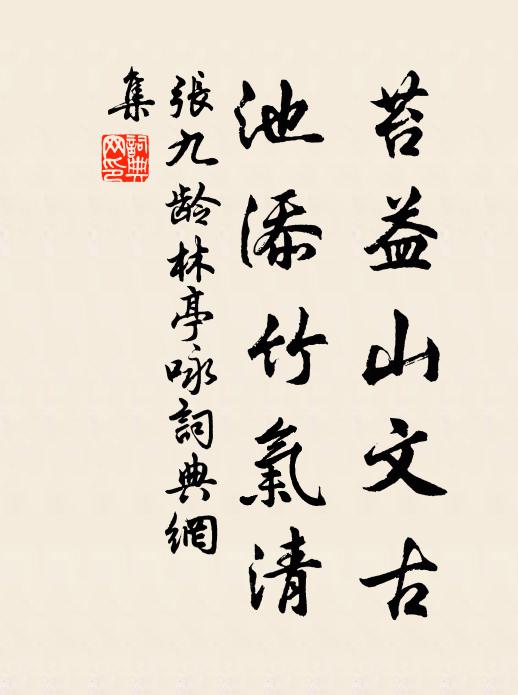 苔益山文古
池添竹氣清
張九龄林亭咏詞典網
集
詞典網印